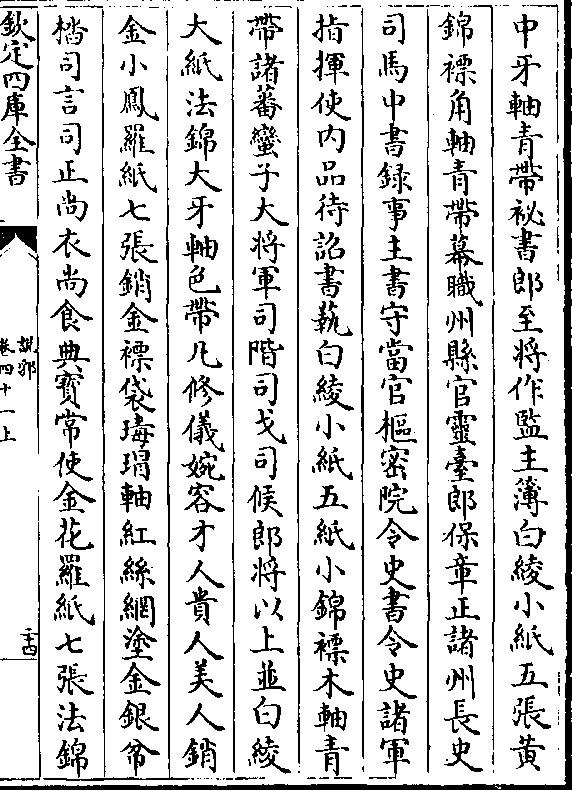 中牙軸青帶祕書郎至將作監主簿白綾小紙五張黄
錦褾角軸青帶幕職州縣官靈臺郎保章正諸州長史
司馬中書録事主書守當官樞密院令史書令史諸軍
指揮使内品待詔書藝白綾小紙五紙小錦褾木軸青
帶諸蕃蠻子大將軍司階司戈司候郎將以上並白綾
大紙法錦大牙軸色帶凡修儀婉容才人貴人美人銷
金小鳳羅紙七張銷金褾袋瑇瑁軸紅絲網塗金銀帉
楷司言司正尚衣尚食典寳常使金花羅紙七張法錦
欽定四庫全書
說郛
卷四十一上
二十四